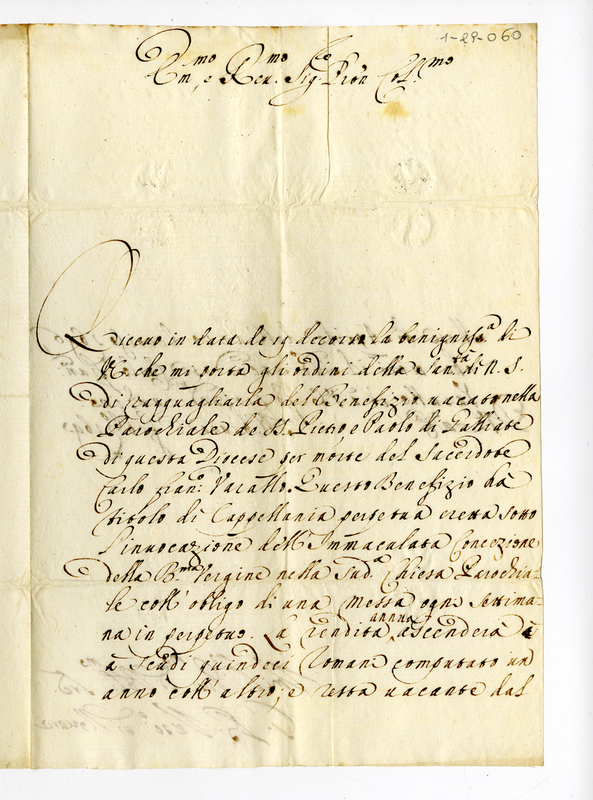 1-29-060
Em.mo e Rev.mo Sig.re Pron Col.mo
Ricevo in data de 19 decorso la benignis.a di
V.E. che mi porta gli ordini della San.tà di N. S.
di ragguagliarla del Benefizio vacato nella
Parochiale de SS. Pietro e Paolo di Galliate
di questa Diocese per morte del Sacerdote
Carlo Fran.co Varallo. Questo Benefizio hà
titolo di Cappellania perpetua eretta sotto
l'invocazione dell'Immaculata Concezione
della B.ma Vergine nella sud.a Chiesa Parochia-
le coll'obligo di una Messa ogni settima-
na in perpetuo. La rendita annua ascenderà
à scudi quindeci Romani computato un
anno coll'altro; e resta vacante dal